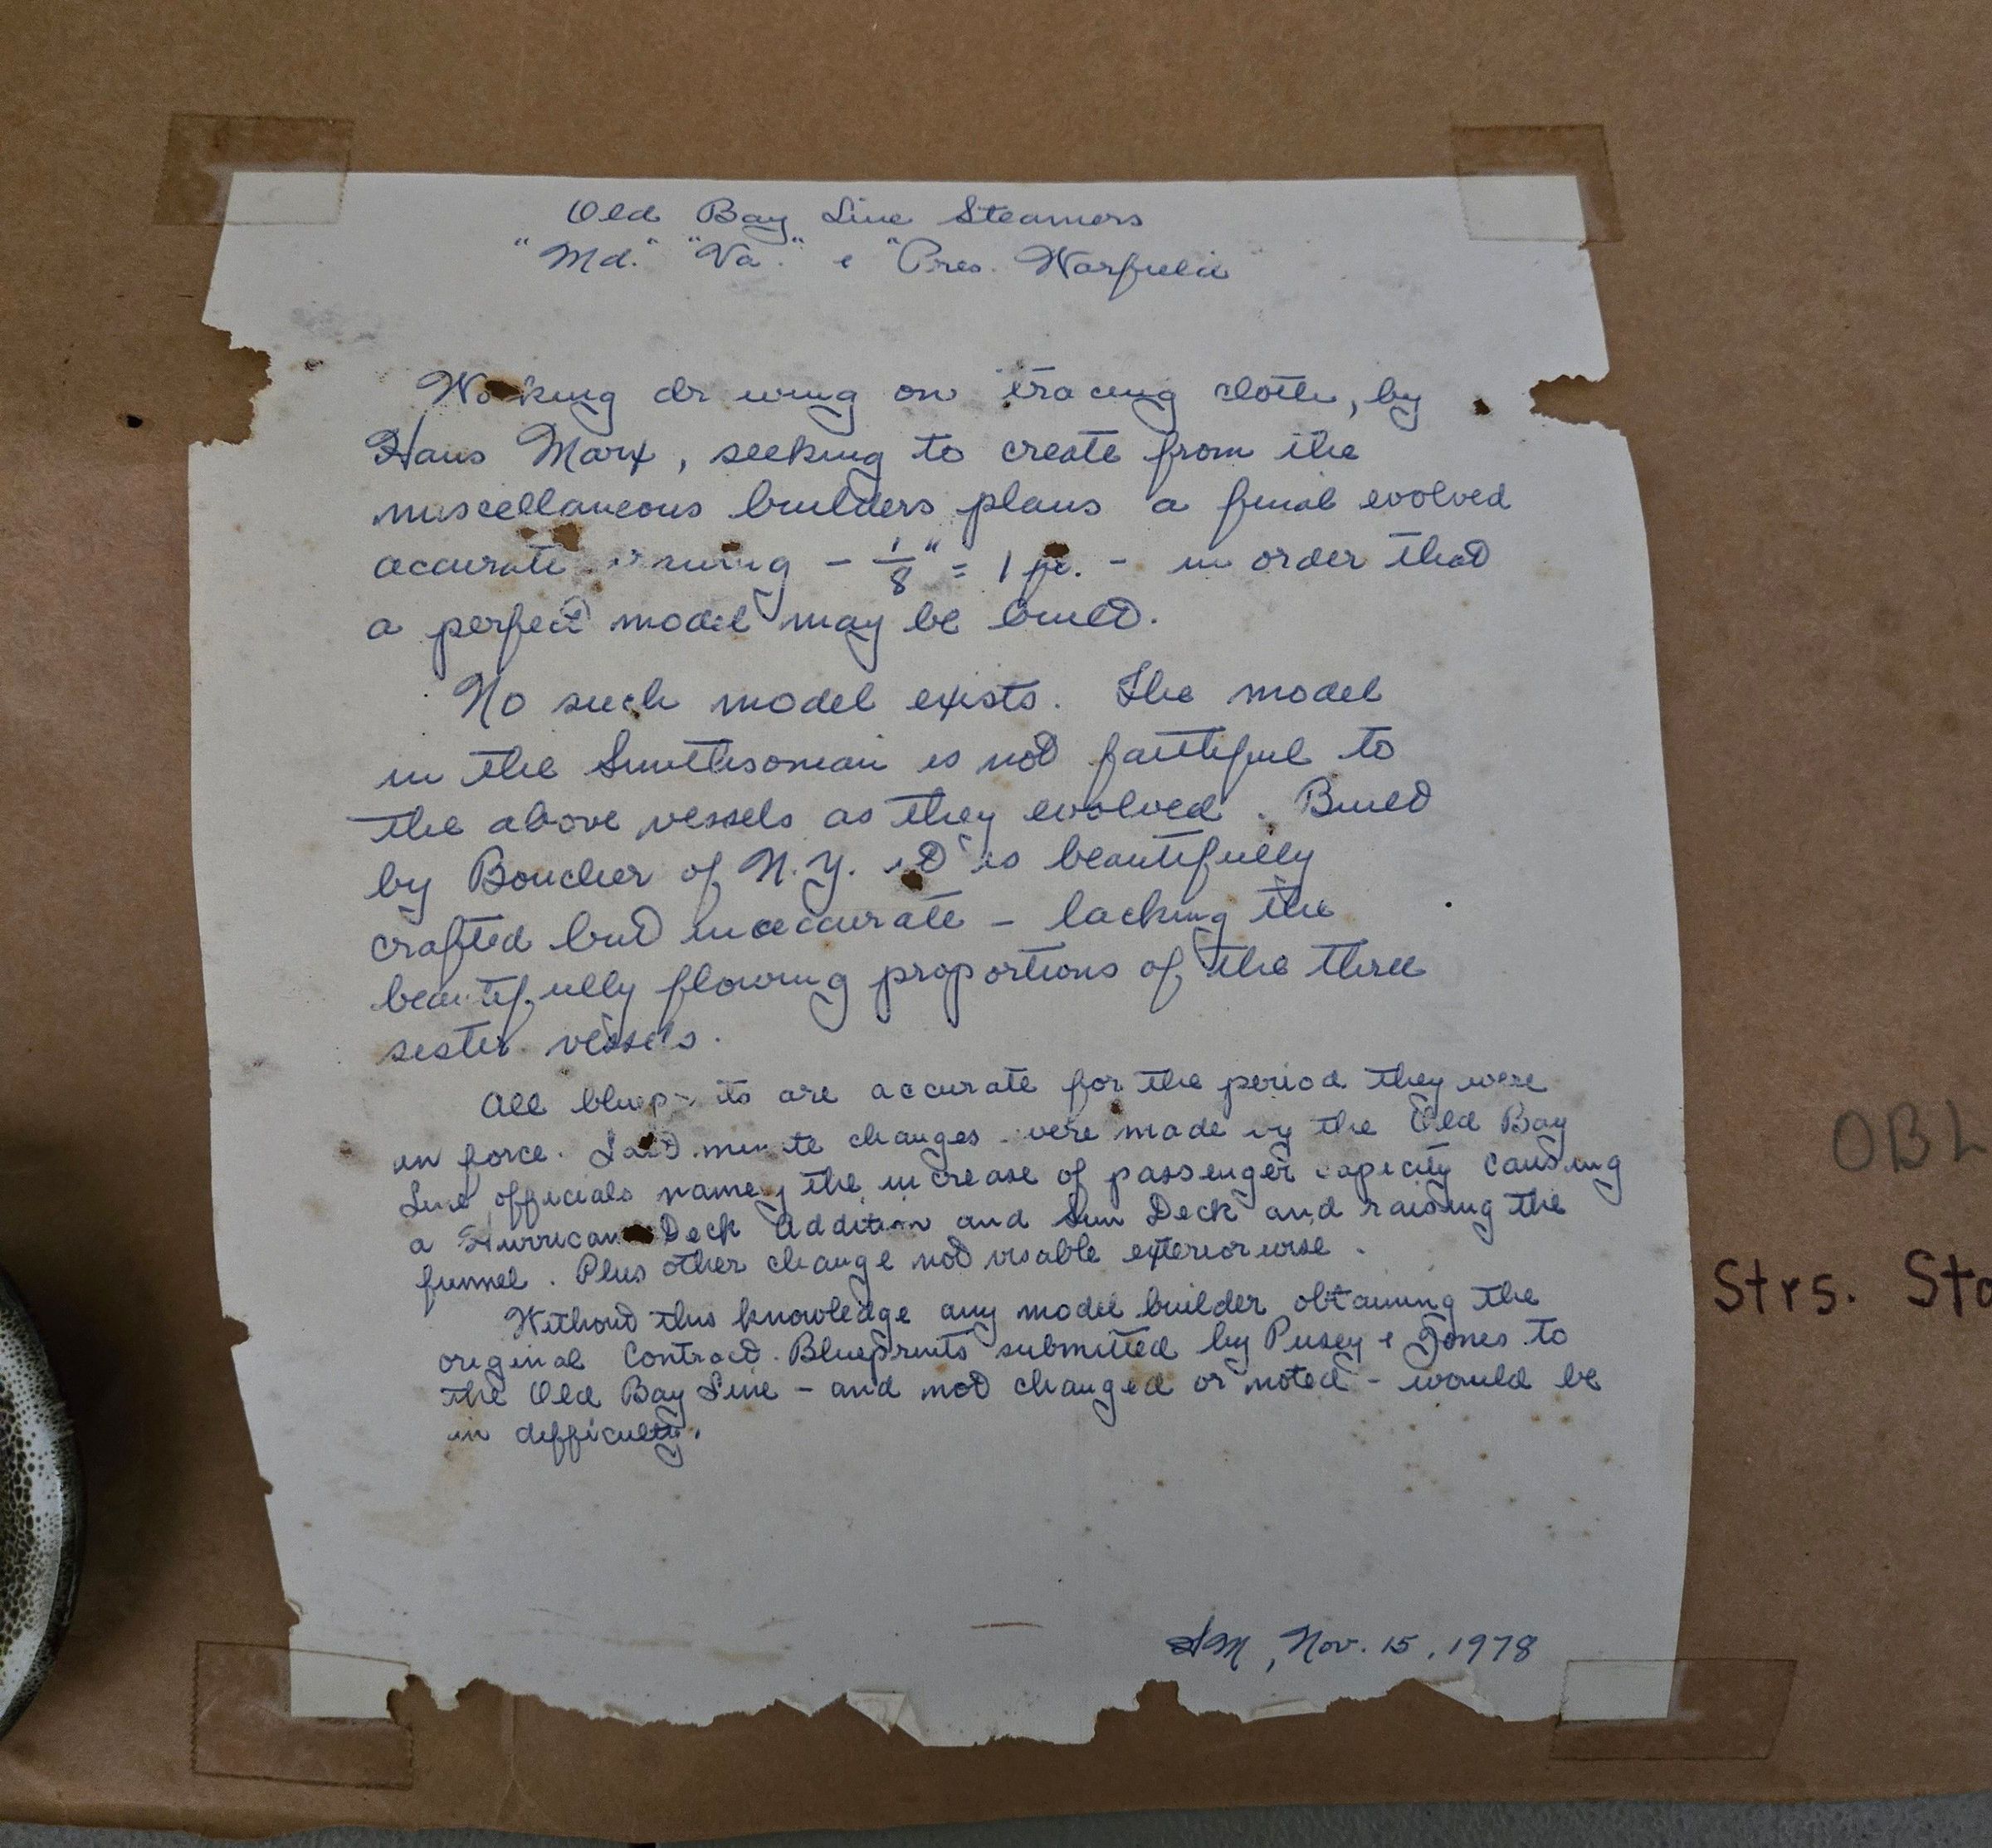 Old Bay Line Steamers
"Md." "Va." & "Pres. Warfield"
Working drawing on tracing cloth, by
Hans Marx, seeking to create from the
miscellaneous builders plans a final evolved
accurate drawing - 1/8" = 1 ft. - in order that
a perfect model may be built.
No such model exists. The model
in the Smithsonian is not faithful to
the above vessels as they evolved. Built
by Boucher of N.Y. it is beautifully
crafted but inaccurate - lacking the
beautifully flowing proportions of the three
sister vessels.
All blueprints are accurate for the period they were
in force. Last minute changes were made by the Old Bay
Line officials namely the increase of passenger capacity causing
a Hurricane Deck addition and Sun Deck and raising the
funnel. Plus other change not visable exteriorwise.
Without this knowledge any model builder obtaining the
original Contract Blueprints submitted by Pusey & Jones to
the Old Bay Line - and not changed or noted - would be
in difficulty.
HM, Nov. 15, 1978
OBL
Strs. Sta